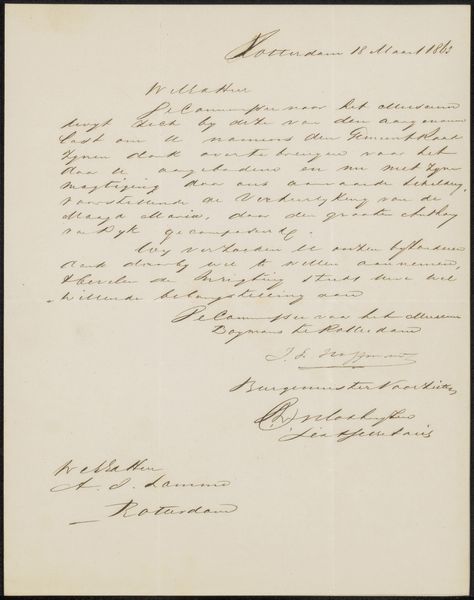 Rotterdam 18 Maart 1863
De Commissie voor het Museum
kwyt zich by deze van den aangenamen
last om U namens den Gemeente Raad
zynen dank overtebrengen voor het
door U aangebodene en nu met zyne
magtiging door ons aanvaarde schildery,
voorstellende de Verheerlyking van de
Maagd Maria, door den grooten
van Dyk gecomponeerd.
Wy verzoeken U onzen byzonderen
dank daarby wel te willen aannemen,
& bevelen de Inrigting steeds Uwe wel-
willende belangstelling aan
De Commissie voor het Museum
Boymans te Rotterdam
J. F. Hoffman
Burgemeester Voorzitter
Secretaris
A. J. Lamme
Rotterdam